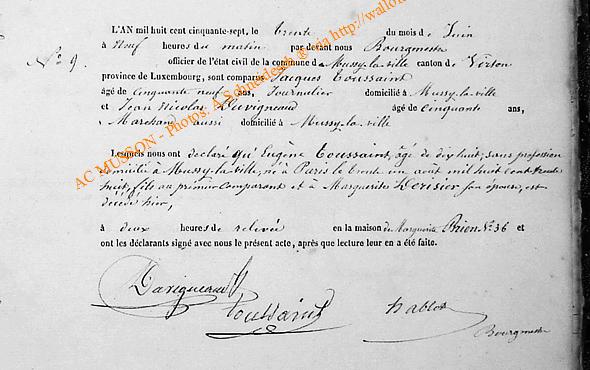 L'AN mil huit cent cinquante-sept, le trente du mois de Juin
No 9. à Neuf heures du matin par devant nous Bourgmestre
officier de l'état civil de la commune de Mussy-la-ville canton de Virton
province de Luxembourg, sont comparus Jacques Toussaint
âgé de cinquante neuf ans, Journalier domicilié à Mussy-la-ville
et Jean Nicolas Duvigneaud âgé de cinquante ans,
Marchand aussi domicilié à Mussy-la-ville
Lesquels nous ont déclaré qu'Eugène Toussaint, âgé de dix huit, sans profession
domicilié à Mussy-la-ville, né à Paris le trente un août mil huit cent trente
huit, fils au premier comparant et à Marguerite Derisier son épouse, est
décédé hier,
à deux heures de relevée en la maison de Marguerite Orien No 36 et
ont les déclarants signé avec nous le présent acte, après que lecture leur en a été faite.
Duvigneaud
Toussaint
Bourgmestre
AC MUSSON - Photos. A.Schneidesch ® via http://wallo